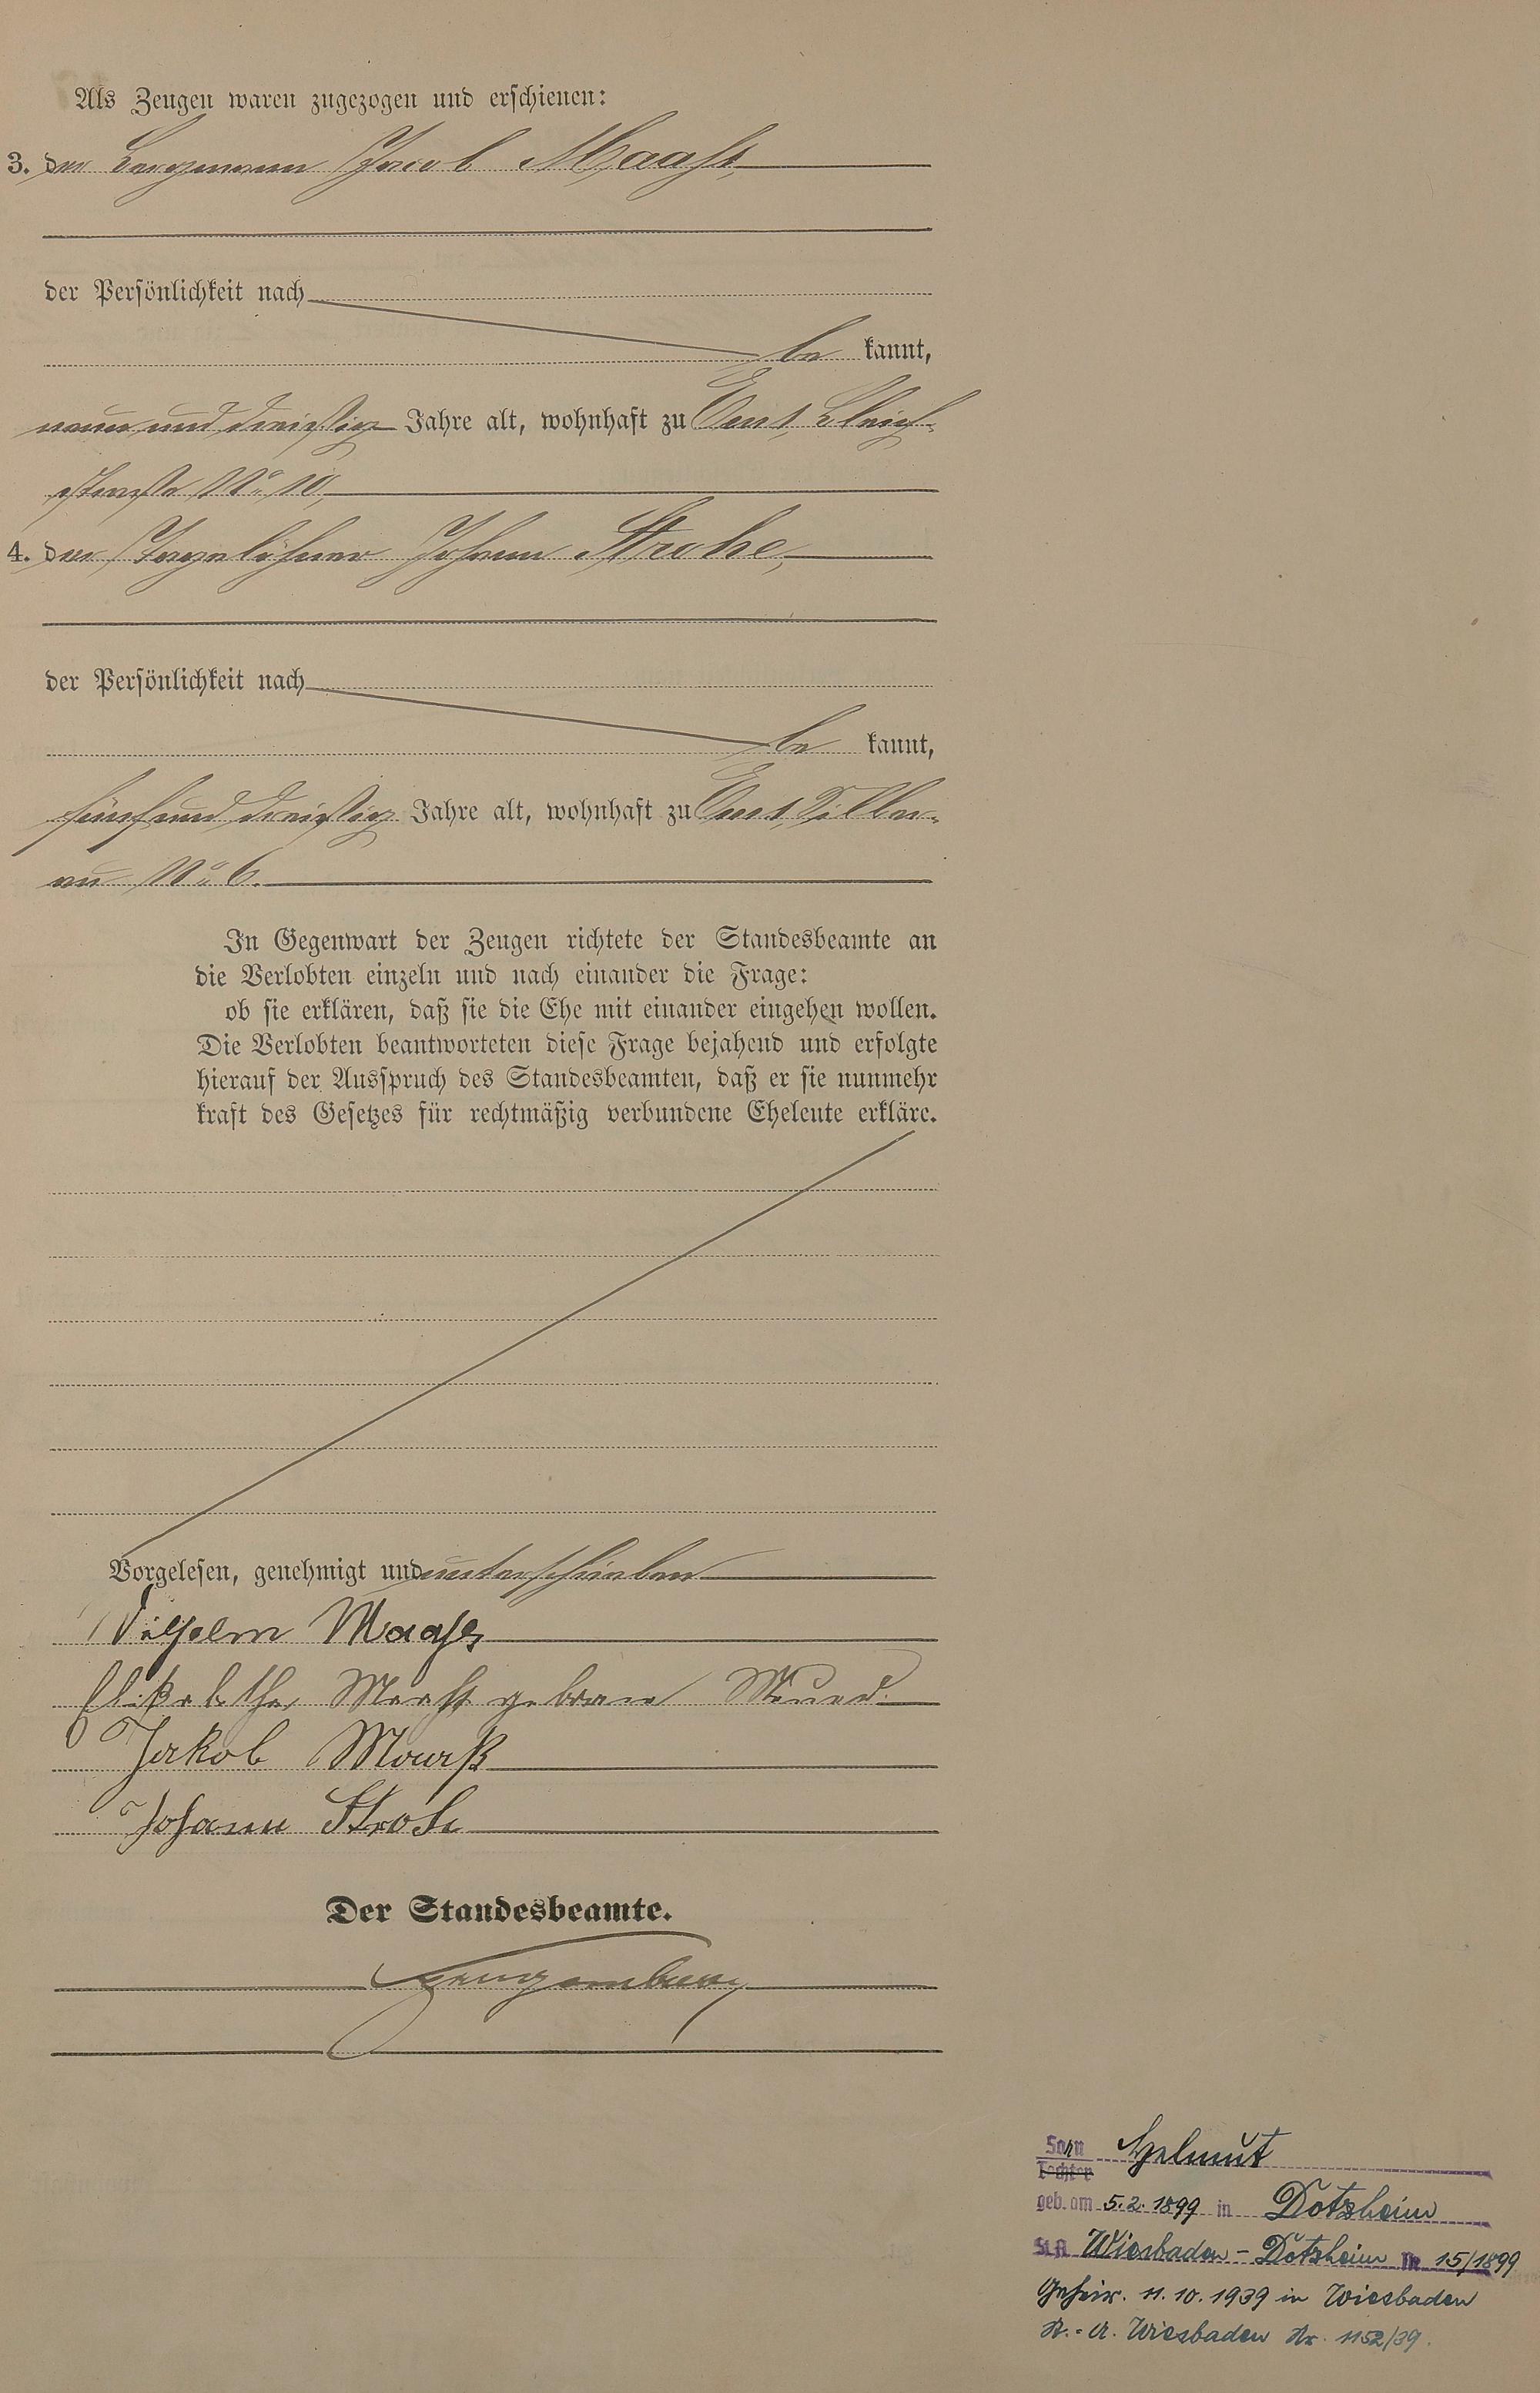 Als Zeugen waren zugezogen und erschienen:
3. der Bergmann Jacob Maaß,
der Persönlichkeit nach
be kannt,
neun und dreißig Jahre alt, wohnhaft zu Ems, Bleich-
straße No 10,
4. der Tagelöhner Johann Strohe,
der Persönlichkeit nach
be kannt,
fünf und dreißig Jahre alt, wohnhaft zu Ems, Silber-
au No 6.
In Gegenwart der Zeugen richtete der Standesbeamte an
die Verlobten einzeln und nach einander die Frage:
ob sie erklären, daß sie die Ehe mit einander eingehen wollen.
Die Verlobten beantworteten diese Frage bejahend und erfolgte
hierauf der Ausspruch des Standesbeamten, daß er sie nunmehr
kraft des Gesetzes für rechtmäßig verbundene Eheleute erkläre.
Vorgelesen, genehmigt und unterschrieben
Wilhelm Maaß
Elisabetha Maaß geborene
Jakob Maaß
Johann Strohe
Der Standesbeamte.
Sohn Helmut
Tochter
geb. am 5.2.1899 in Dotzheim
St.A. Wiesbaden-Dotzheim Nr. 15/1899
Geheir. 11.10.1939 in Wiesbaden
St.-A. Wiesbaden Nr. 1152/39.